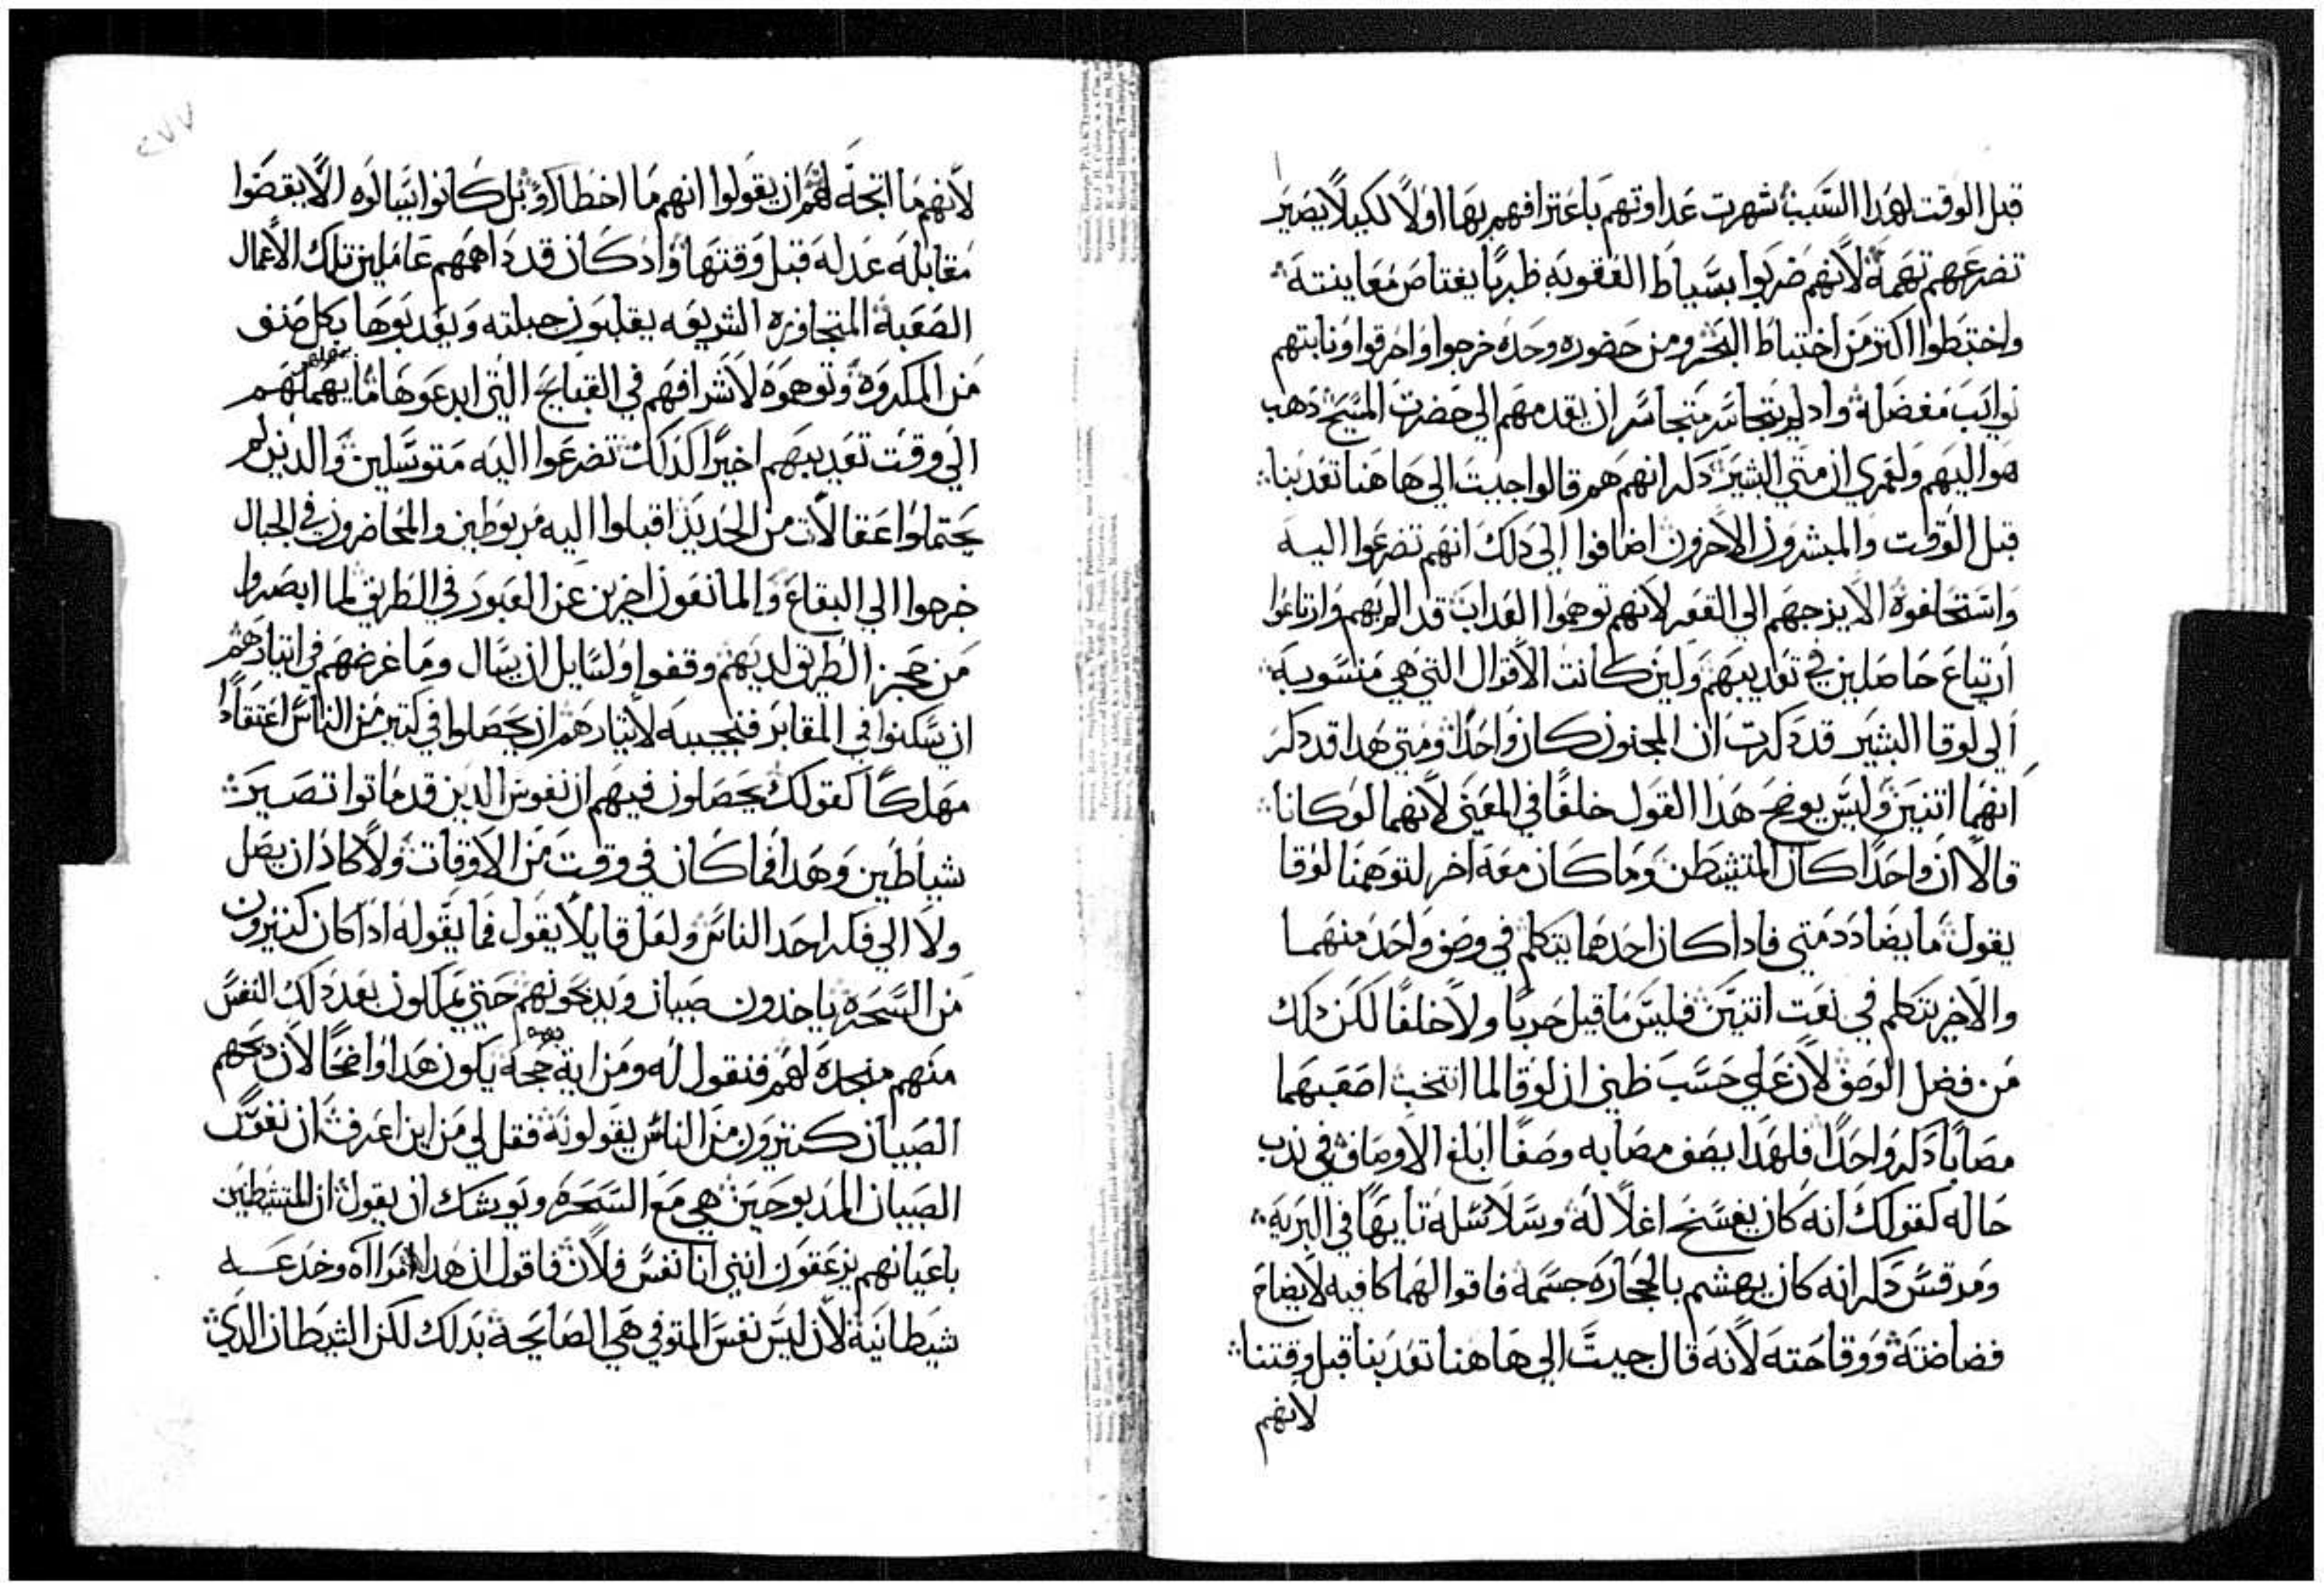 قبل الوقت لهدا السبب شهرت عداوتهم باعترافهم بها اولاً لكيلا يصير
تضرعهم تهمة لانهم ضربوا بسياط العقوبه ظربًا يغتاص معاينته
واختبطوا اكتر من اختباط البحر ومن حضوره وحده خرجوا واحرقوا ونابتهم
نوايب مغضلة واد لم يتجاسر متجاسر ان يقدمهم الي حضرت المسيح دهب
هو اليهم ولعمري ان متي البشير دكر انهم هم قالوا جيت الي هاهنا تعدبنا
قبل الوقت والمبشرون الاخرون اضافوا الي دلك انهم تضرعوا اليه
واستحلفوة الا يزجهم الي القعر لانهم توهموا العداب قد الم بهم وارتاعوا
ارتياع حاصلين في تعديبهم ولين كانت الاقوال التي هي منسوبه
الي لوقا البشير قد دكرت ان المجنون كان واحدًا ومتي هدا قد دكر
انهما اتنين وليس يوضح هدا القول خلفًا في المعني لانهما لو كانا
قالا ان واحدًا كان المتشيطن وما كان معه اخر لتوهمنا لوقا
يقول ما يضادد متي فادا كان احدهما يتكلم في وصف واحد منهما
والاخر يتكلم في نعت اتنين فليس ما قيل حربًا ولا خلفًا لكن دلك
من فضل الوصف لان علي حسب ظني ان لوقا لما انتخب اصعبهما
مصابًا دكر واحدًا فلهدا يصف مصابه وصفًا ابلغ الاوصاف في ندب
حاله كقولك انه كان يفسخ اغلاله وسلاسله تايهًا في البريه
ومرقس دكر انه كان يهشم بالحجاره جسمه فاقوالهما كافيه لايضاح
فضاضته ووقاحته لانه قال جيت الي هاهنا تعدبنا قبل وقتنا
لانهم
٢٧٧
لانهم ما اتجه لهم ان يقولوا انهم ما اخطاوا بل كانوا يسالوه الا يقضوا
مقابله عدله قبل وقتها واد كان قد داهمهم عاملين تلك الاعمال
الصعبة المتجاوزه الشريعه يقلبون جبلته ويعدبوها بكل صنف
من المكروه وتوهموه لاشرافهم في القبايح التي ابدعوها ما يمهلهم
الي وقت تعديبهم اخيرًا كدلك تضرعوا اليه متوسلين والدين لم
يحتملوا عقالات من الحديد اقبلوا اليه مربوطين والحاضرون في الجبال
خرجوا الي البقاع والمانعون اخرين عن العبور في الطريق لما ابصروا
من حجز الطريق لديهم وقفوا ولسايل ان يسال وما غرضهم في ايتيارهم
ان يسكنوا في المقابر فنجيبه لايتيارهم ان يحصلوا في كتير من الناس اعتقادًا
مهلكًا كقولك يحصلون فيهم ان نفوس الدين قد ماتوا تصير
شياطين وهدا فما كان في وقت من الاوقات ولا كاد ان يصل
ولا الي فكر احد الناس ولعل قايلاً يقول فما يقوله ادا كان كتيرون
من السحره ياخدون صبيان ويدبحونهم حتي يملكون بعد دلك النفس
منهم منجدة لهم فنقول له ومن اية جهه يكون هدا واضحًا لان دبحهم
الصبيان كتيرون من الناس يقولونه فقل لي من اين اعرفت ان نفوس
الصبيان المدبوحين هي مع السحره ويوشك ان يقول ان المتشيطين
باعيانهم يزعقون انني انا نفس فلان فاقول ان هدا وخدعه
شيطانية لان ليس نفس المتوفي هي الصايحة بدلك لكن الشيطان الدي